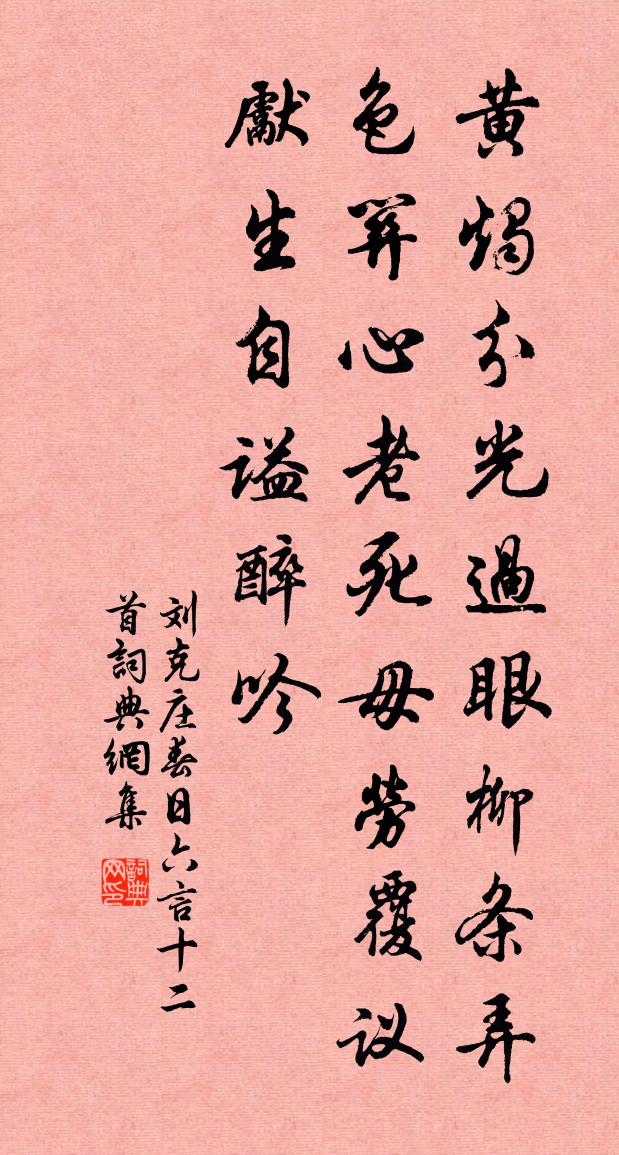 黄燭分光過眼柳条弄
色關心老死毋勞覆议
獻生自谥醉吟
刘克庄春日六言十二
首詞典網集
詞典
网印